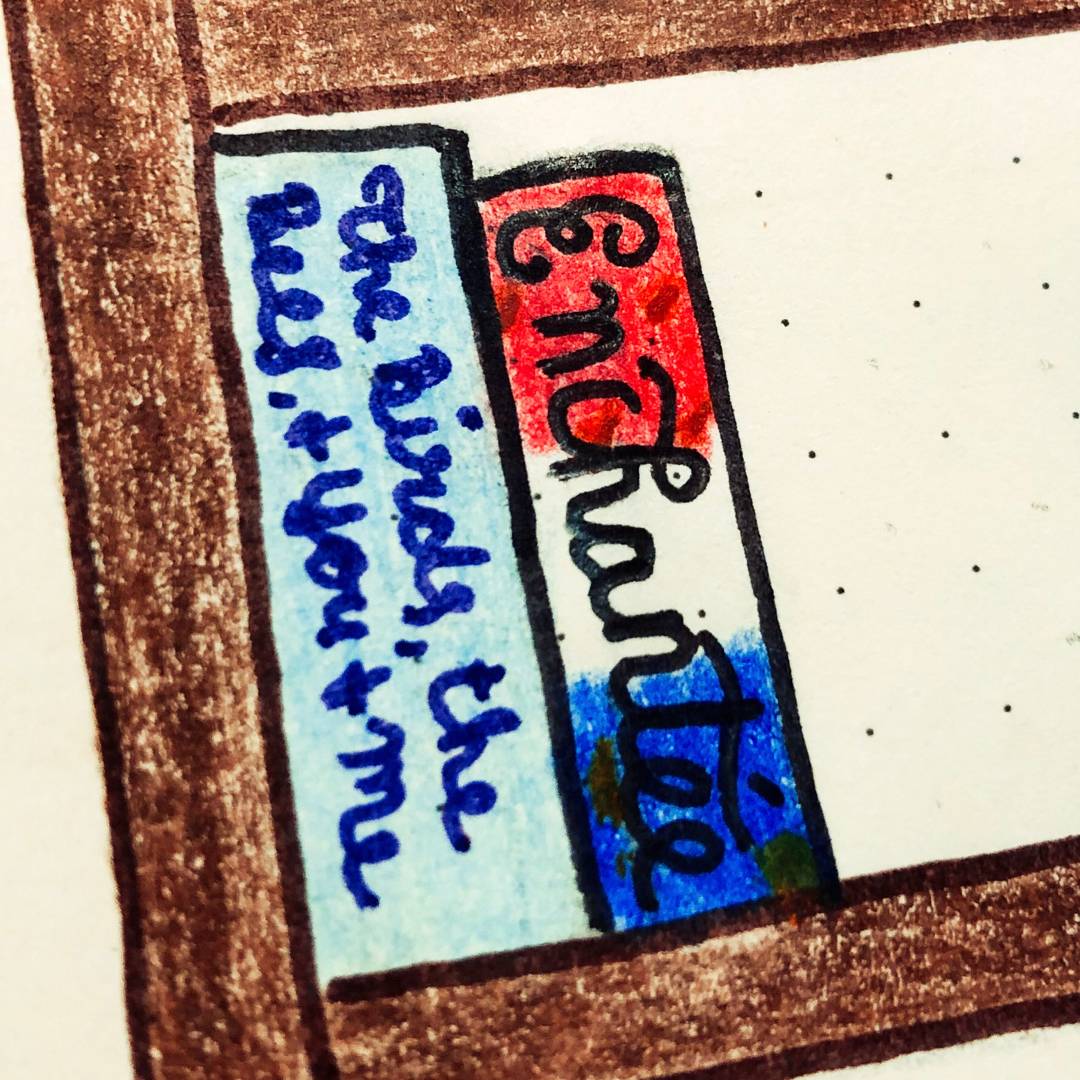 The birds, the
Bees, + you + me
EnChanTie